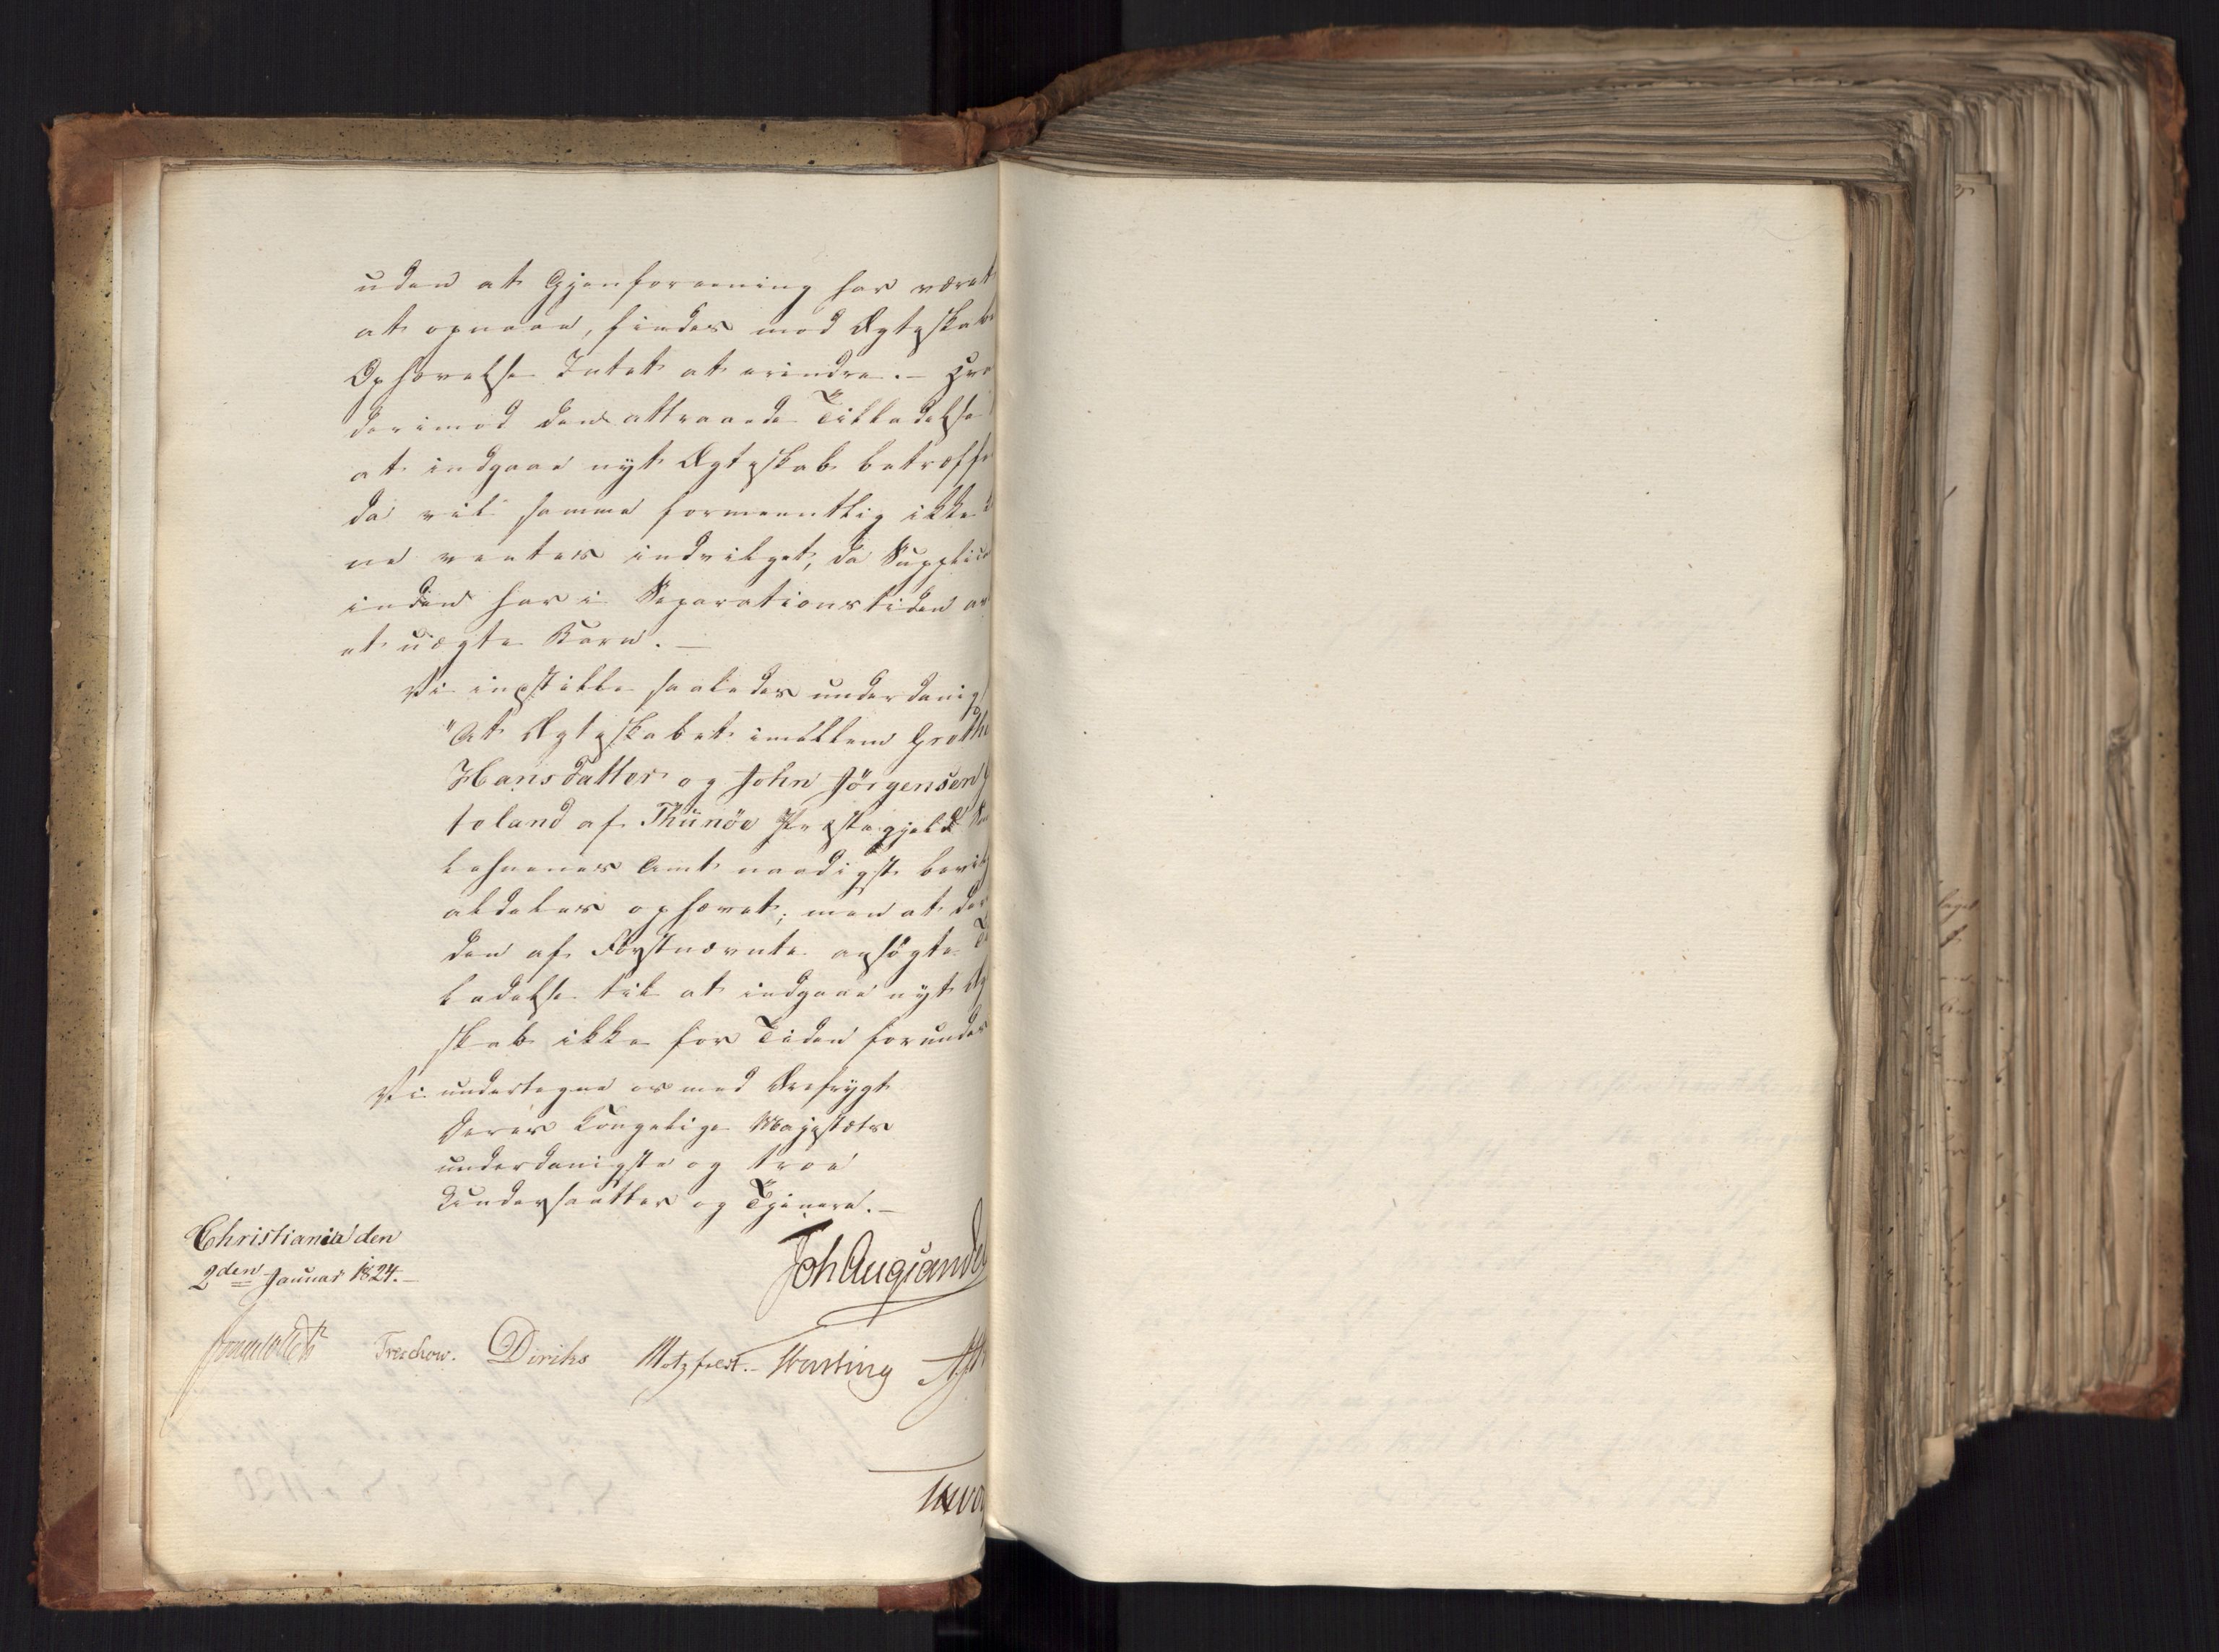 uden at Gjenforeening har været
at opnaae, findes mod Ægteskabe
Ophævelse Intet at erindre. – Hva
derimod den attraaede Tilladelse
at indgaae nyt Ægteskab betræffe
da vil samme formeentlig ikke
ne ventes indvilget, da Supplica
inden har i Separationstiden av
et uægte Barn. –
Vi indstille saaledes underdanig
"At Ægteskabet imellem Grethe
Hansdatter og John Jörgensen
toland af Thünöe Præstegjeld
lehnenes Amt naadigst bevil
aldeles ophævet; men at der
den af Förstnævnte ansögte Ti
ladelse til at indgaae nyt Æg
skab ikke for Tiden forundes
Vi undertegne os med Ærefrygt
Deres Kongelige Majestæts
underdanigste og troe
Undersaatter og Tjenere. –
Christiania den
2den Januar 1824. –
Joh Aug Sandel
Treschow. Diriks Motzfeldt. –